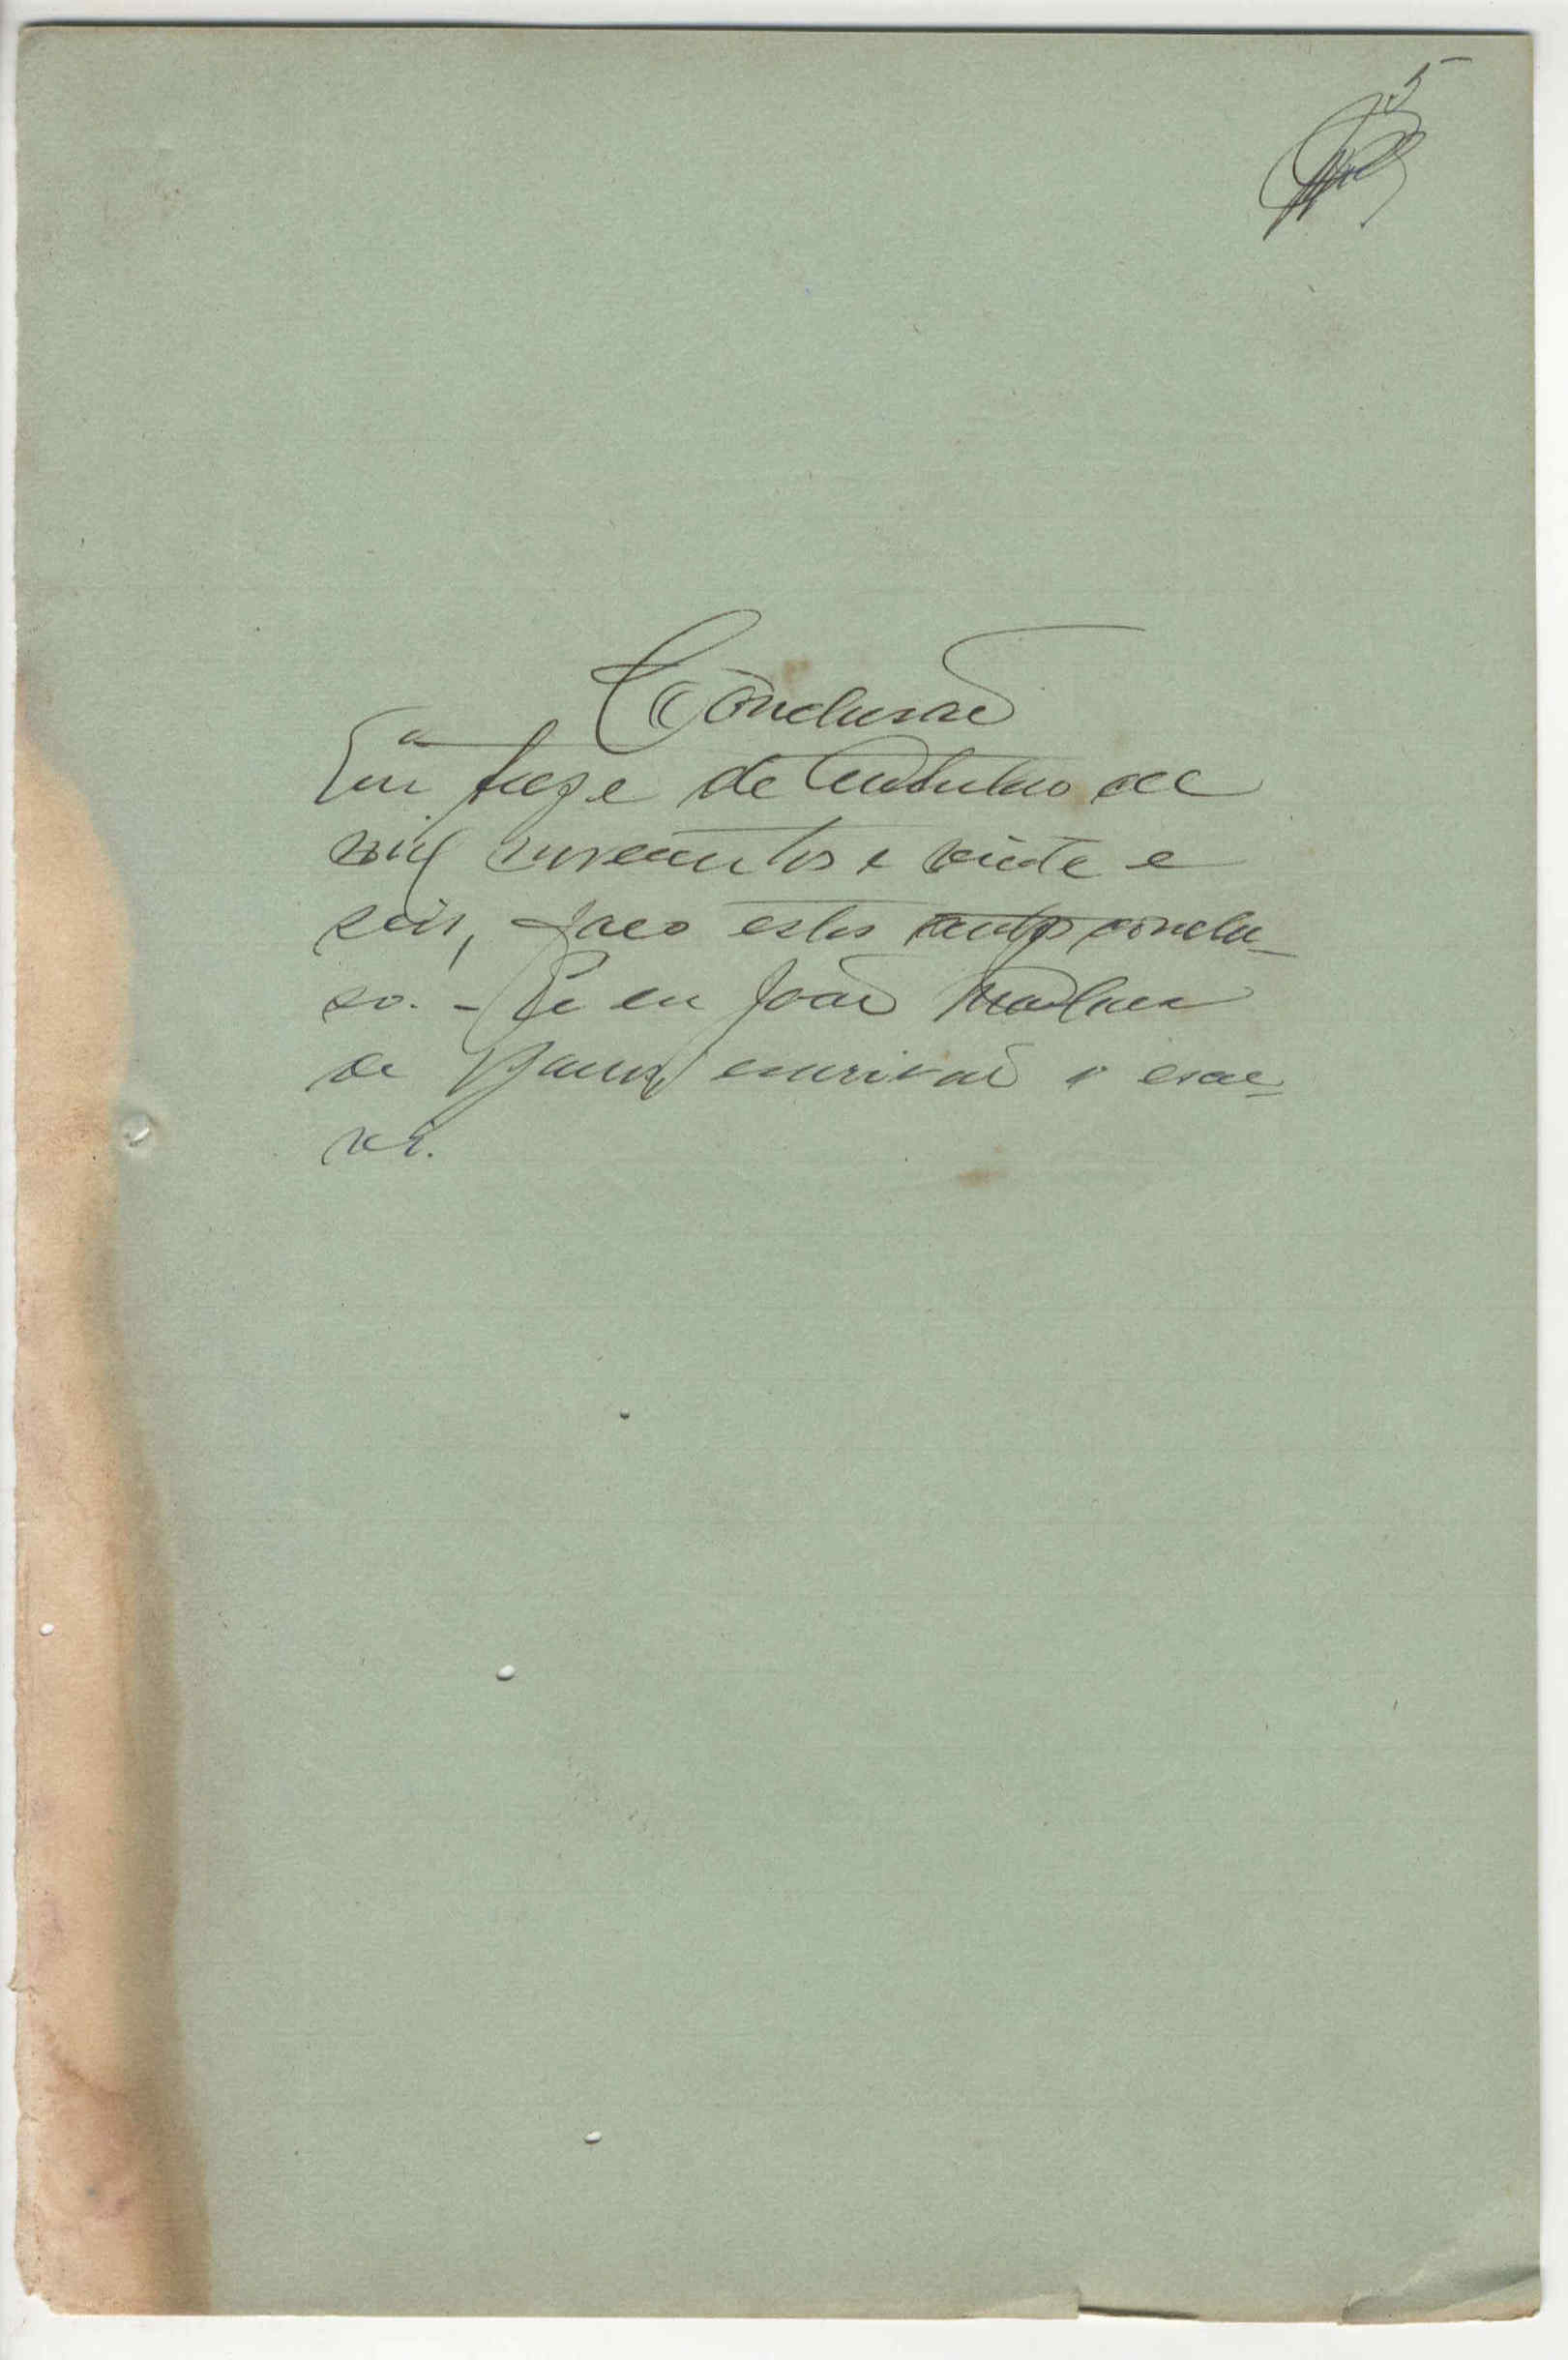 5
Conclusão
Em treze de Outubro de
mil novecentos e vinte e
seis, faço estes autos conclu-
so. - Eu João
de escrivão o escre-
vi.